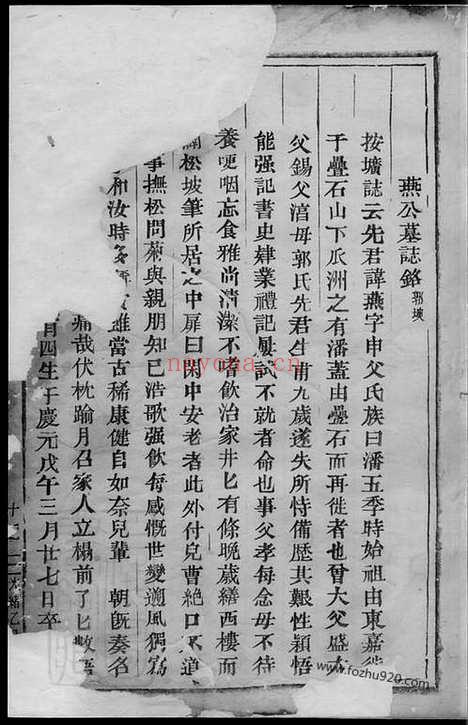 燕公墓誌銘 郭埉
按壙誌云先君諱燕字申父氏族曰潘五季時始祖由東嘉徙
于疊石山下瓜洲之有潘蓋由疊石而再徙者也曾大父盛大
父錫父淯母郭氏先君生甫九歲遂失所恃備歷其艱性穎悟
能强記書史肄業禮記屢試不就者命也事父孝每念母不待
養哽咽忘食雅尚清潔不嗜飲治家井匕有條晚歲繕西樓而
松坡筆所居之中扉曰閑中安老者此外付兒曹絶口不道
事撫松問菊與親朋知已浩歌强飲每感慨世變適風獨寫
和汝時 雖當古稀康健自如奈兒輩 朝旣奏名
痛哉伏枕踰月召家人立榻前了匕數語
月四生于慶元戊午三月廿七日卒
nayona.cn
www.fozhu920.com